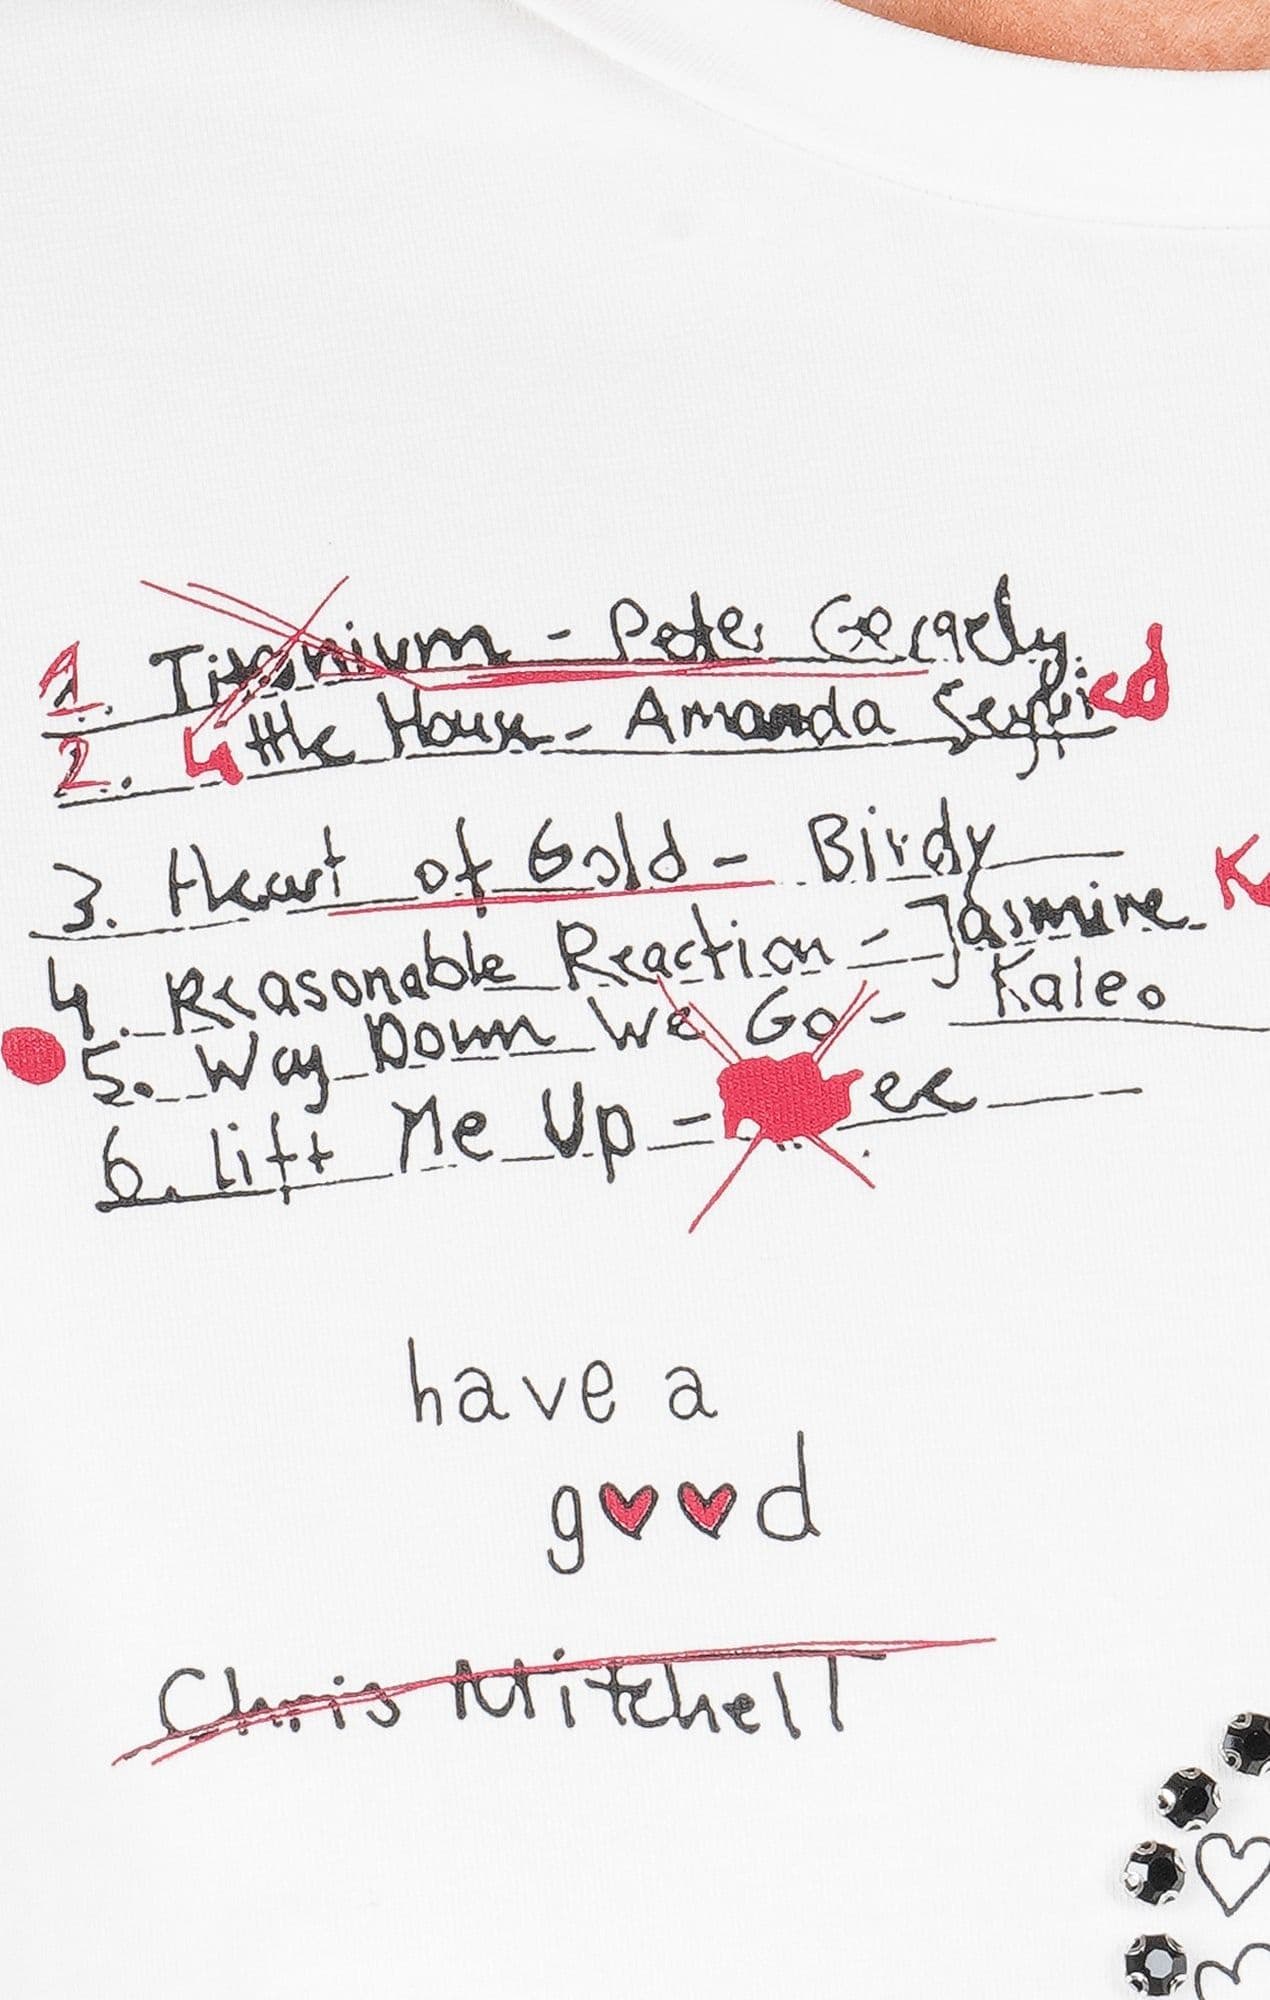 1. Titanium - Peter Gergely
2. Little House - Amanda Seyfried
3. Heart of Gold - Birdy
4. Reasonable Reaction - Jasmine
K
5. Way Down We Go - Kaleo
6. Lift Me Up - ee
have a
good
Chris Mitchell